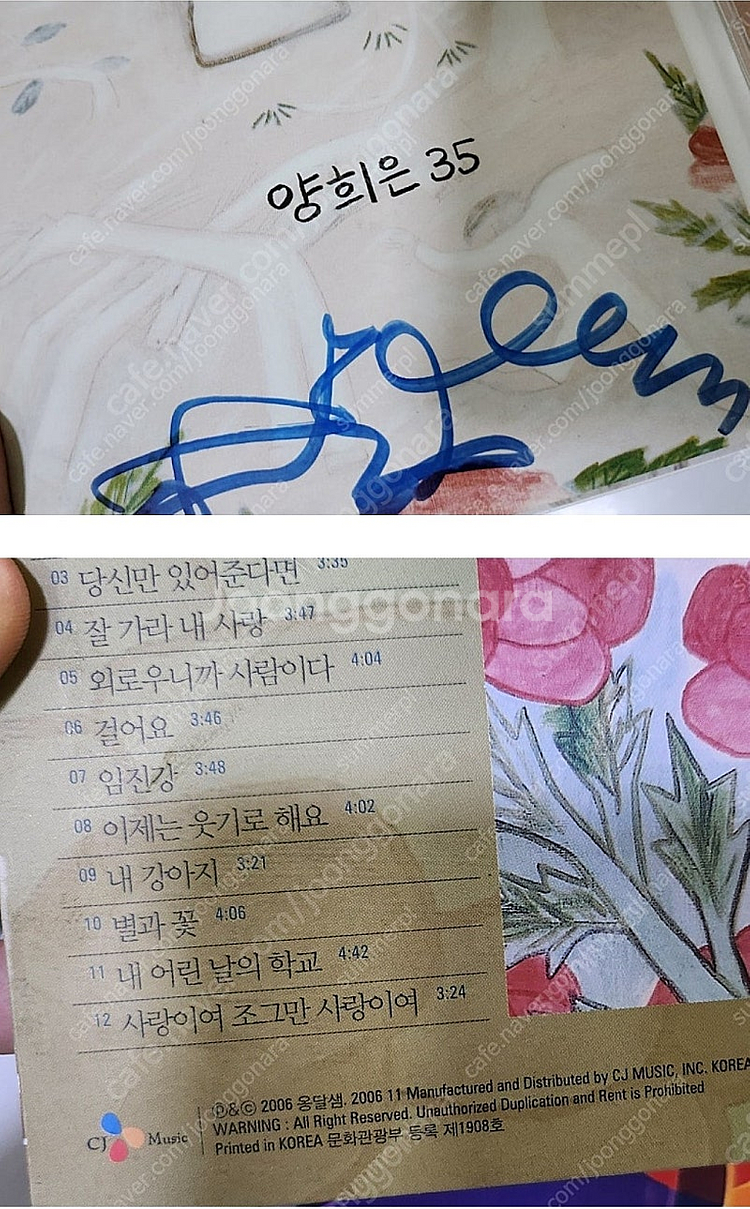 양희은 35
03 당신만 있어준다면 3:35
04 잘 가라 내 사랑 3:47
05 외로우니까 사람이다 4:04
06 걸어요 3:46
07 임진강 3:48
08 이제는 웃기로 해요 4:02
09 내 강아지 3:21
10 별과 꽃 4:06
11 내 어린 날의 학교 4:42
12 사랑이여 조그만 사랑이여 3:24
CJ Music
Ⓟ&ⓒ 2006 옹달샘. 2006 11 Manufactured and Distributed by CJ MUSIC, INC. KOREA
WARNING : All Right Reserved. Unauthorized Duplication and Rent is Prohibited
Printed in KOREA 문화관광부 등록 제1908호
Joonggonara
cafe.naver.com/joonggonara
summepl